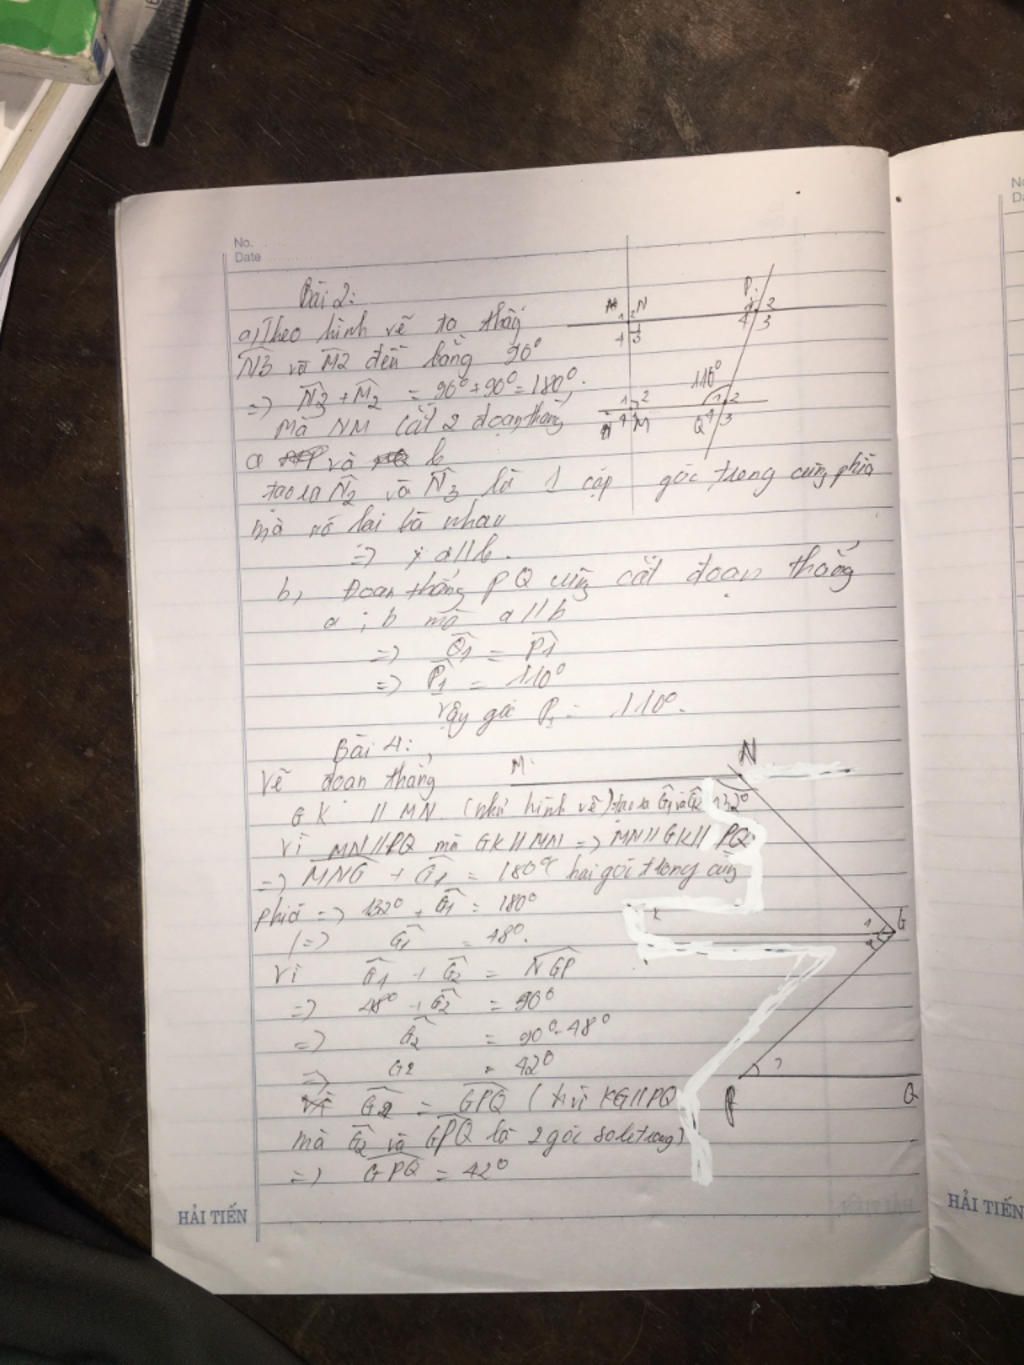 No.
Date
Bài 2:
a) Theo hình vẽ ta thấy
N3 và M2 đều bằng 90°
=> N3 + M2 = 90° + 90° = 180°.
mà NM cắt 2 đoạn thẳng
a và b
tạo ra N2 và N3 là 1 cặp góc trong cùng phía
mà nó lại bù nhau
=> a // b.
b, Đoạn thẳng PQ cũng cắt đoạn thẳng
a ; b mà a // b
=> Q1 = P1
=> P1 = 110°
Vậy góc P1 = 110°.
M N
1 2
4 3
P
1 2
4 3
110°
1 2
4 M
1 2
Q 4 3
Bài 4:
Vẽ đoạn thẳng
GK // MN (như hình vẽ) tạo ra G1 và G2
Vì MN // PQ mà GK // MN => MN // GK // PQ
=> MNG + G1 = 180° (hai góc trong cùng
phía => 132° + G1 = 180°
(=> G1 = 48°.
Vì G1 + G2 = NGP
=> 48° + G2 = 90°
=> G2 = 90° - 48°
=> G2 = 42°
G2 = GPQ (vì KG // PQ
mà G2 và GPQ là 2 góc sole trong)
=> GPQ = 42°
M
N
132°
K
1
G
2
?
P
Q
HẢI TIẾN
HẢI TIẾN